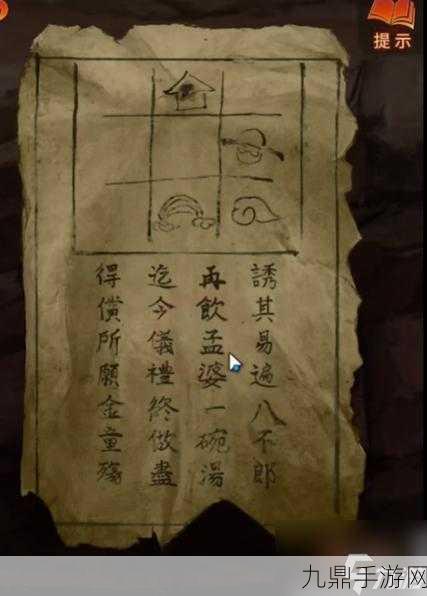 提示
誘其易遍八不郎
再飲孟婆一碗湯
迄今儀禮終做盡
得償所願金童殤
九鼎手游网